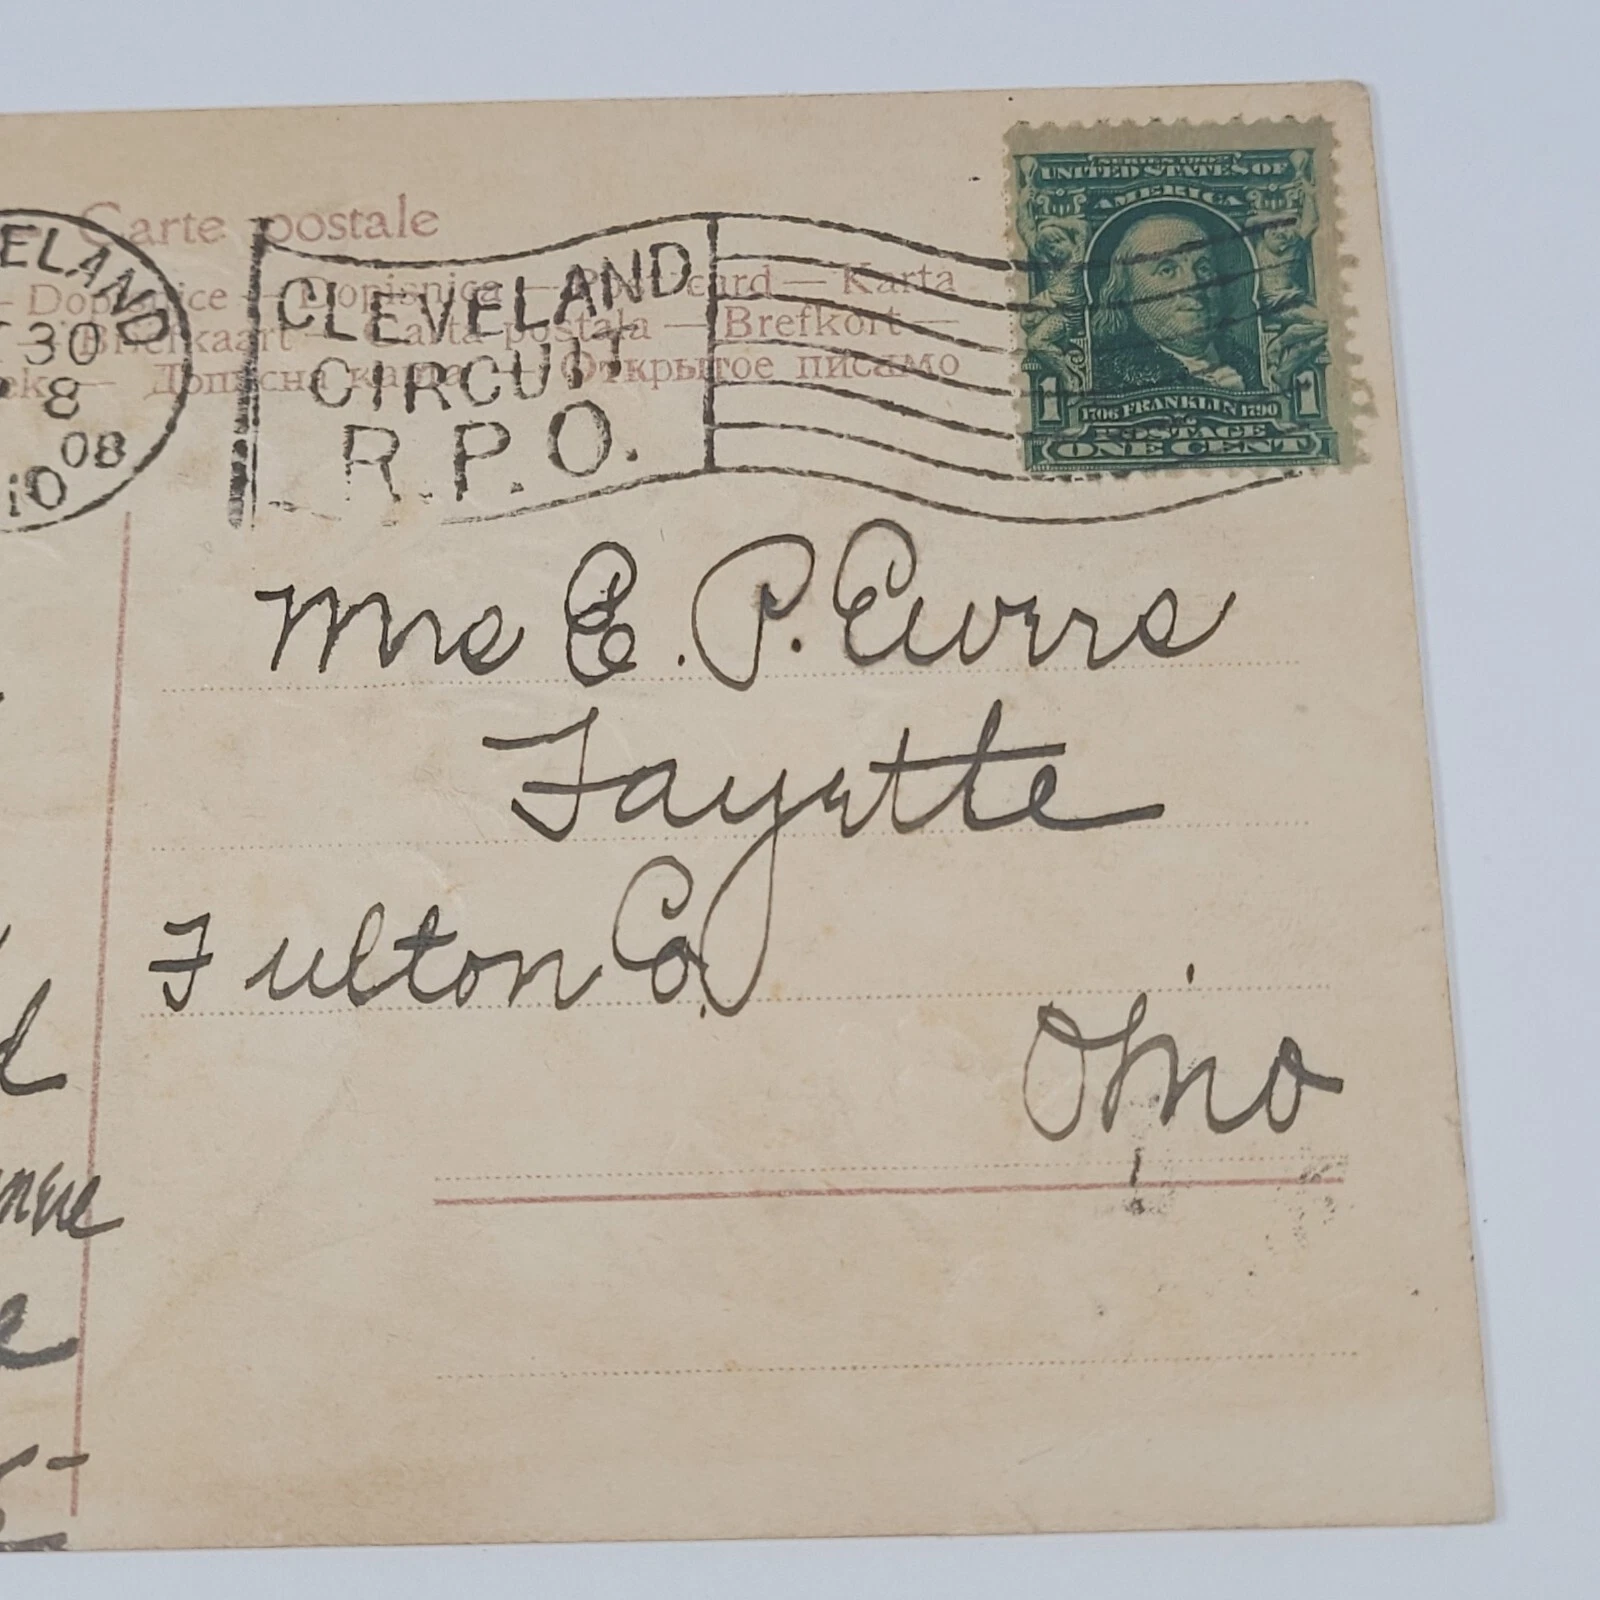 Carte postale
CLEVELAND
30
8
08
CLEVELAND
CIRCUIT
R.P.O.
— Dopisnice — Dopisnica — Post card — Karta
— Briefkaart — Carta postala — Brefkort —
— Дописна карта — Открытое письмо
SERIES 1902
UNITED STATES OF
AMERICA
1 1706 FRANKLIN 1790 1
POSTAGE
ONE CENT
Mrs E. P. Evers
Fayette
Fulton Co.
Ohio